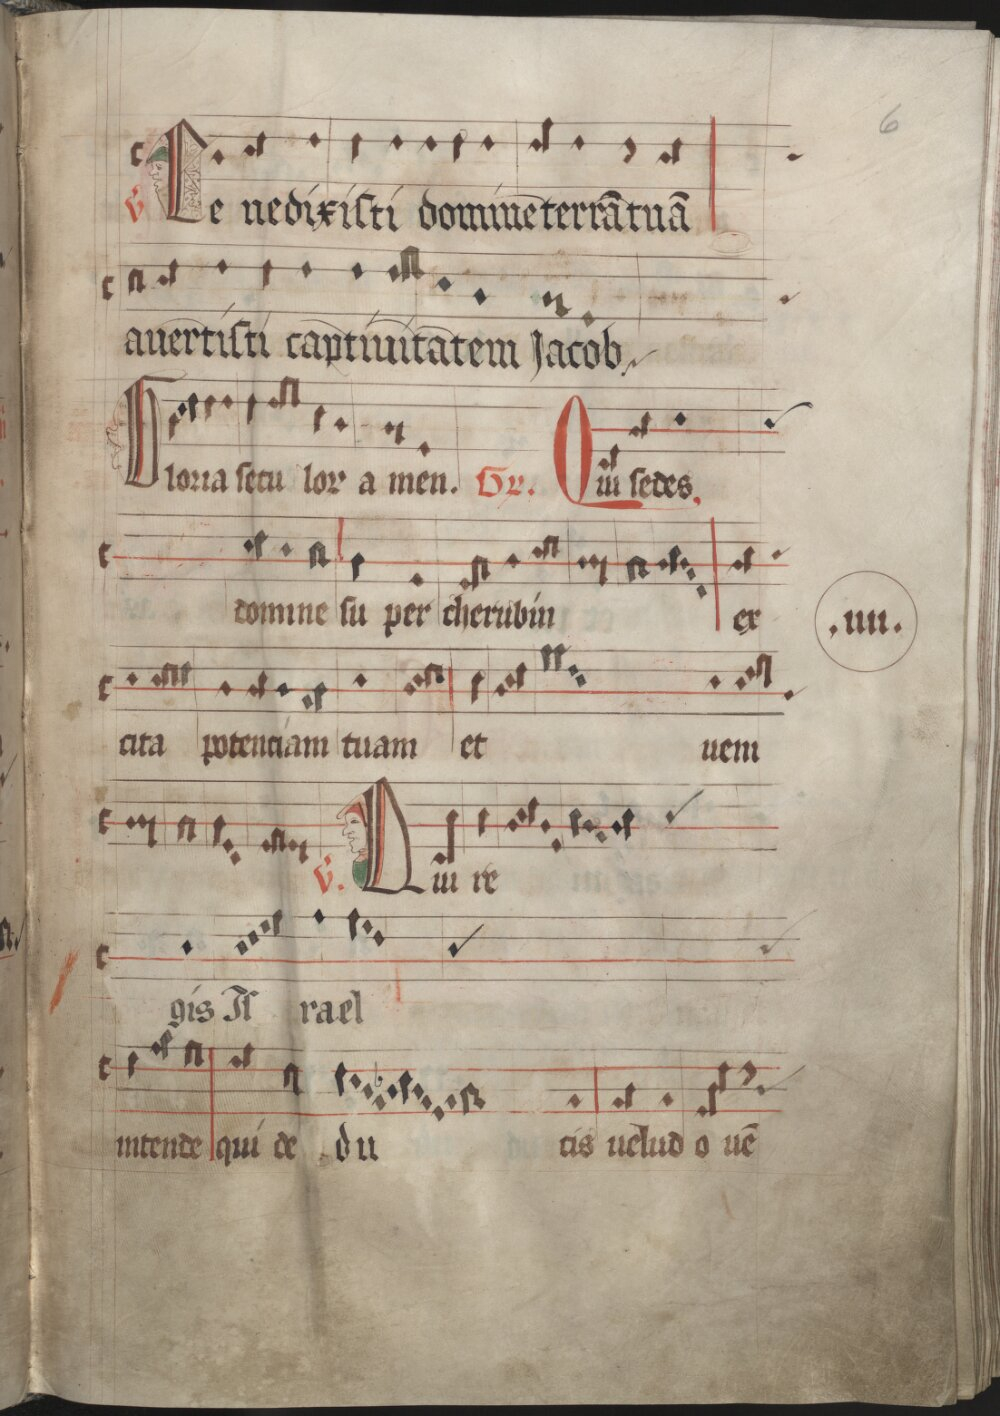 6
v Be nedixisti domine terrā tuā
auertisti captiuitatem Jacob
Gloria secu lor a men. Gr. Qui sedes.
domine su per cherubin ex
.iiii.
cita potenciam tuam et ueni
v. Qui re
gis Is rael
intende qui de du cis uelud o uē